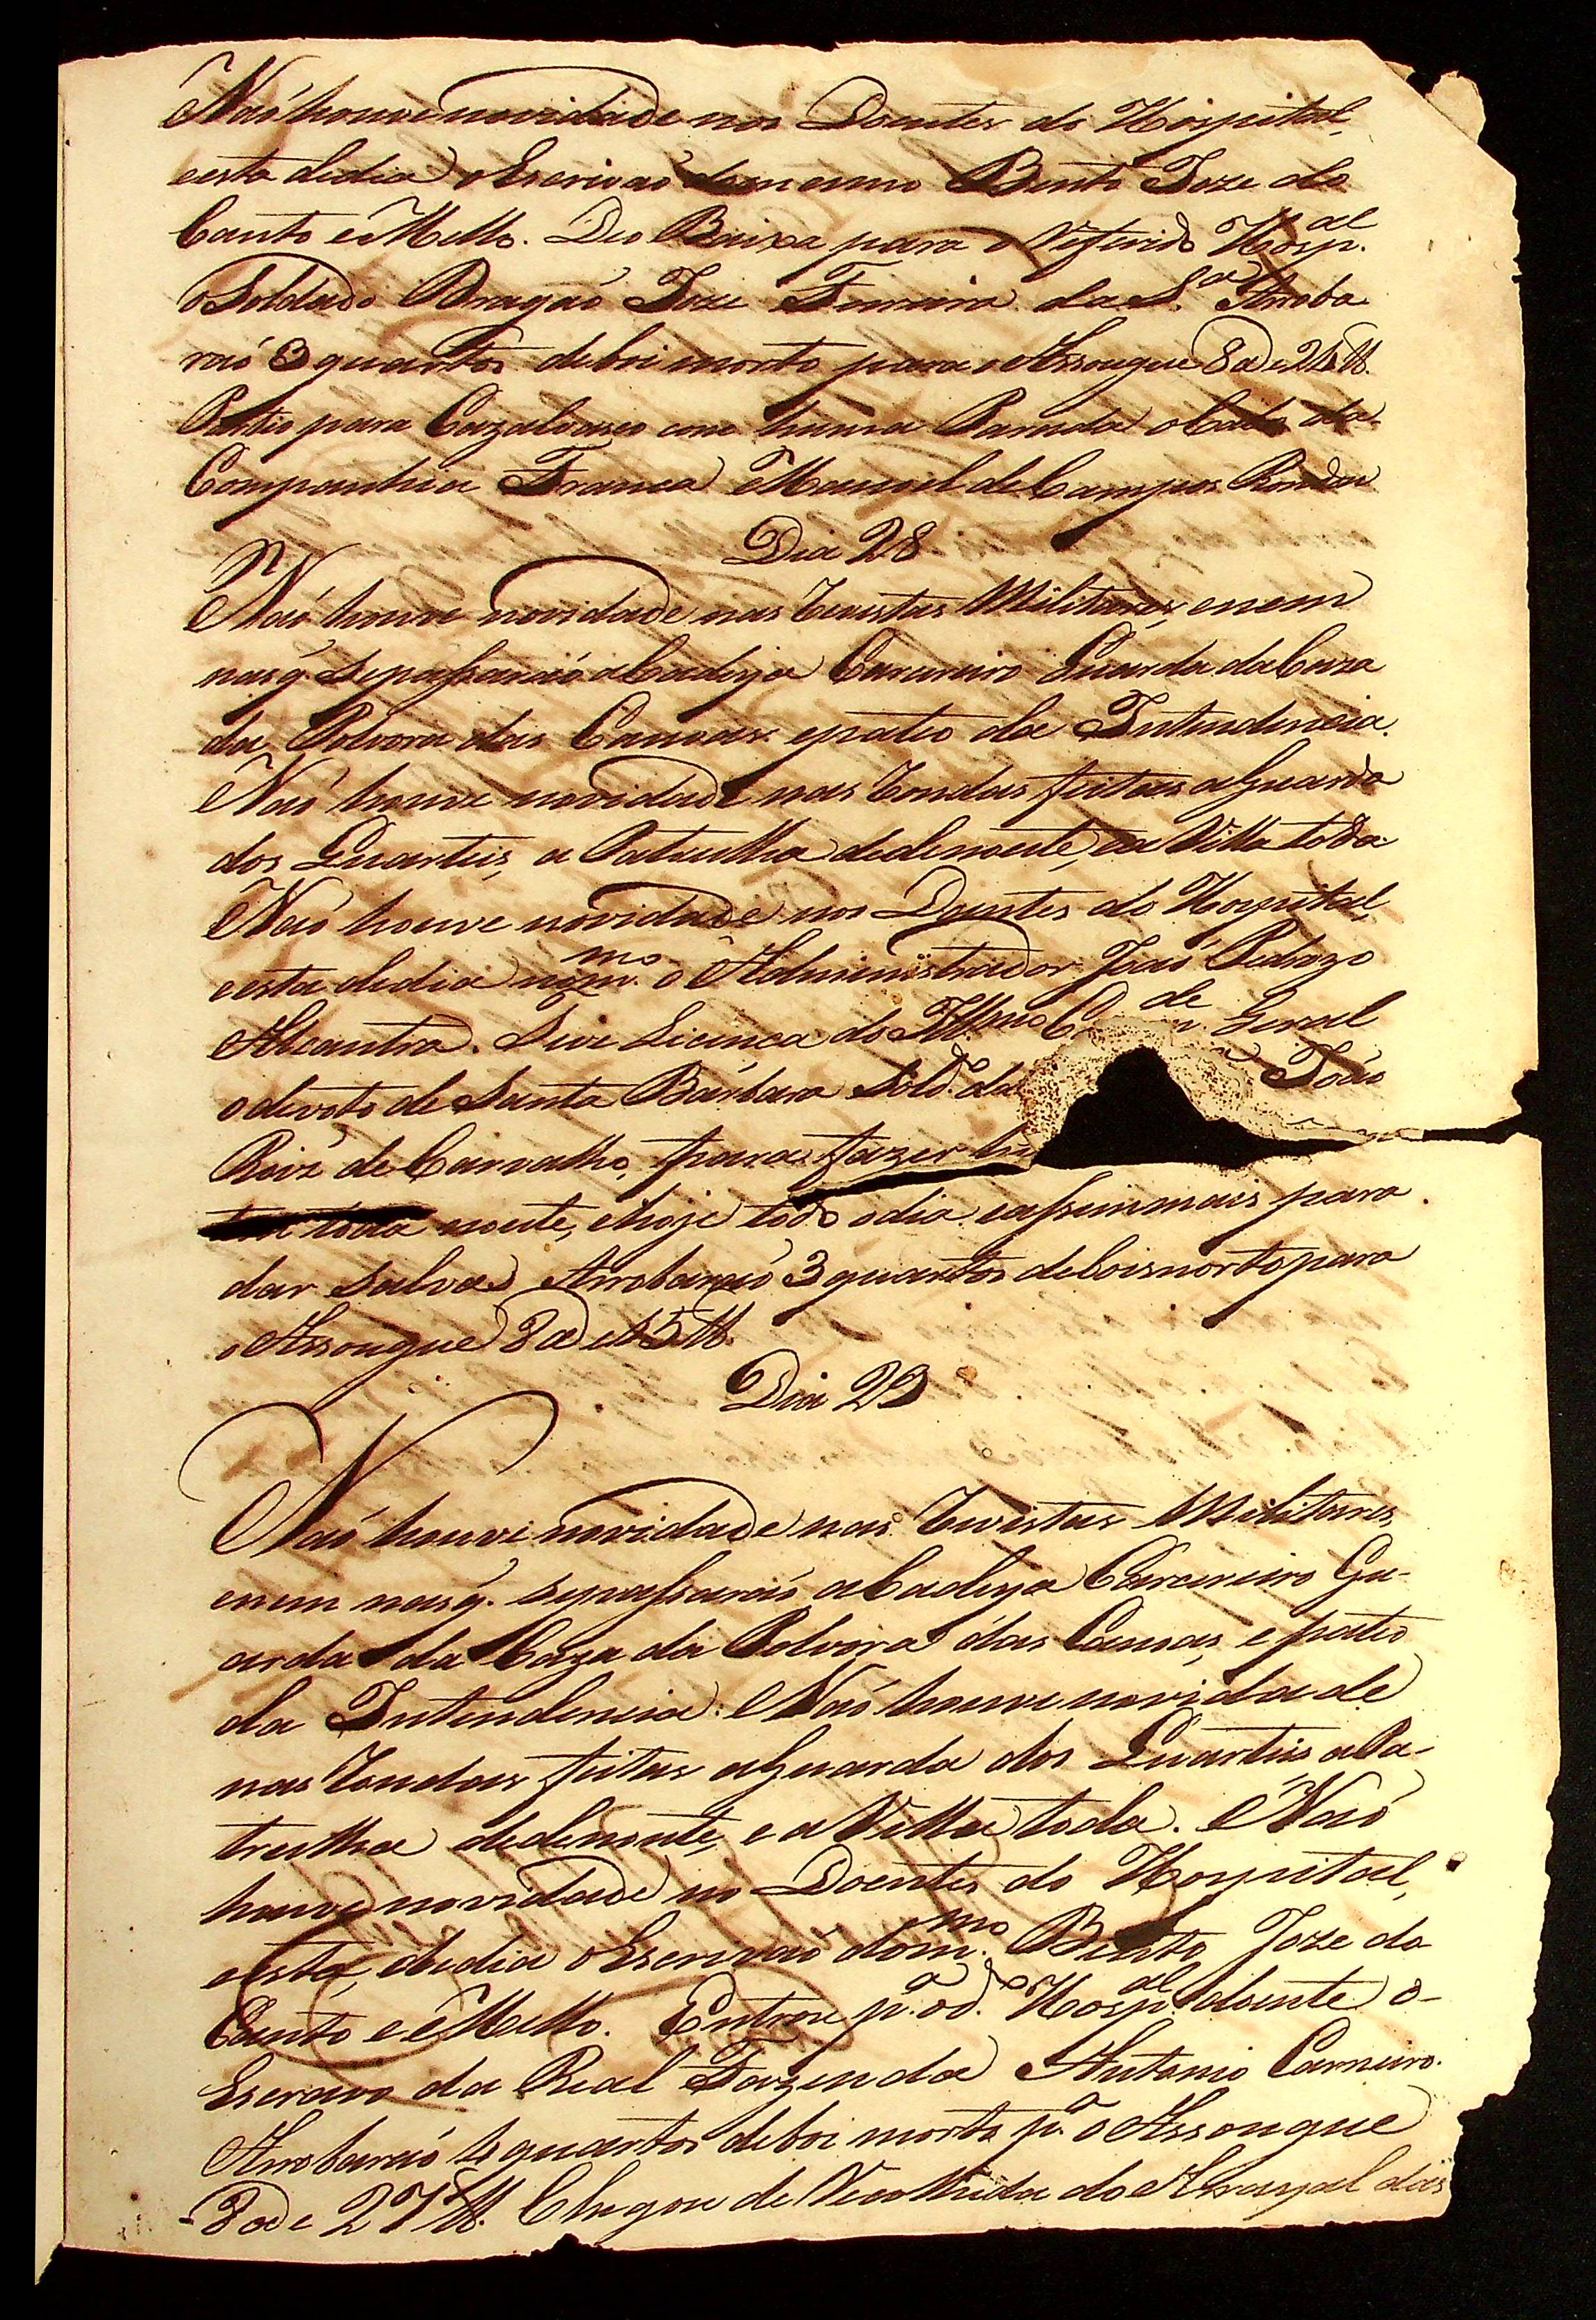 Naõ houve novidade nos Doentes do Hospital,
e esta de dia o Escrivaõ do mesmo Bento Joze do
Canto e Mello. Deo Baixa para o referido Hosp.al
o Soldado Dragaõ Joze Ferreira da S.a Arroba
raõ 3 quartos de boi morto para o Assougue 8 @ e 24 lb.
Partio para Cazalvasco com huma Parada o Cabo da
Companhia Franca Manoel de Campos Rondon
Dia 28
Naõ houve novidade nas revistas Militares, e nem
nas q. se passaraõ a Cadeya Carcereiro Guarda da Caza
da Polvora das Canoas e patio da Intendencia.
Naõ houve novidade nas rondas feitas a Guarda
dos Quarteis, a Patrulha de de noute, e a Villa toda
Naõ houve novidade nos Doentes do Hospital,
e esta de dia no m.mo o Administrador Joaõ Pedrozo
Alcantra. Teve Licença do Ill.mo C de Geral
o devoto de Santa Barbara Sold.o da Joaõ
Roiz de Carvalho, para fazer
toda noute, e hoje todo o dia e assim mais para
dar salvas Arrobaraõ 3 quartos de boi morto para
o Assougue 8 @ e 15 lb.
Dia 29
Naõ houve novidade nas revistas Militares
e nem nas q. se passaraõ a Cadeya Carcereiro Gu-
arda da Caza da Polvora das Canoas, e patio
da Intendencia: Naõ houve novidade
nas rondas feitas a Guarda dos Quarteis, a Pa-
trulha de de noute, e a Villa toda. Naõ
houve novidade no Doentes do Hospital,
e esta, de dia o Escrivaõ do m.mo Bento Joze do
Canto e Mello. Entrou p.a o d.o Hosp.al doente o
Escravo da Real Fazenda Antonio Carneiro.
Arrobaraõ 4 quartos de boi morto p.a o Assougue
8 @ e 27 lb. Chegou de recolhida do Arrayal das